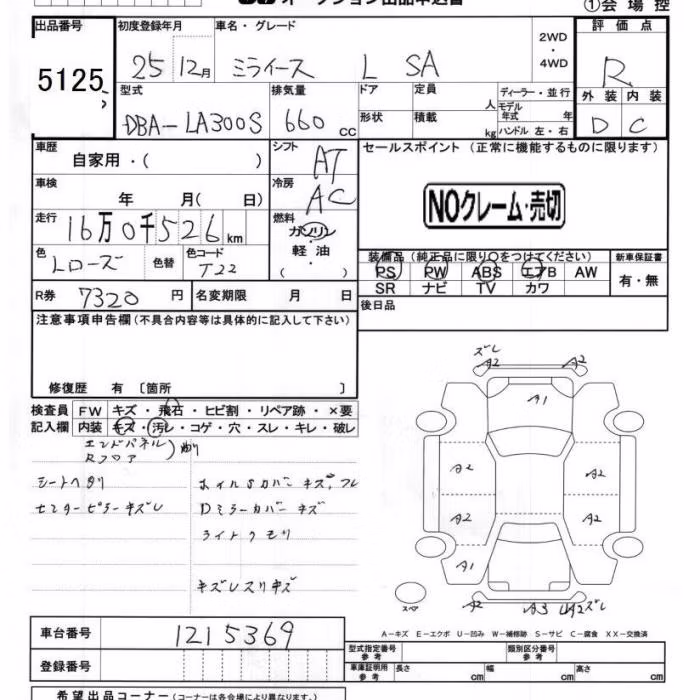 オークション出品申込書
①会場控
出品番号 5125
初度登録年月 25 12月
車名・グレード ミライース L SA
2WD・4WD
評価点 R
外装 D 内装 C
型式 DBA-LA300S
排気量 660 cc
ドア
定員 人
ディーラー・並行
形状
積載 kg
モデル年式 年
ハンドル 左・右
車歴 自家用・( )
シフト AT
セールスポイント(正常に機能するものに限ります)
車検 年 月( 日)
冷房 AC
NOクレーム・売切
走行 16万0千526km
燃料 ガソリン・軽油・( )
色 Lローズ
色替
色コード T22
装備品(純正品に限り○をつけてください)
新車保証書
PS PW ABS エアB AW
有・無
SR ナビ TV カワ
R券 7320円
名変期限 月 日
後日品
注意事項申告欄(不具合内容等は具体的に記入して下さい)
修復歴 有 〔箇所 〕
検査員記入欄
FW キズ・飛石・ヒビ割・リペア跡・×要
内装 キズ・汚レ・コゲ・穴・スレ・キレ・破レ
エンドパネル
Rフロア
シートヘタリ
ホイルSカバー キズ、フレ
センターピラーキズレ
Dミラーカバー キズ
ライトクモリ
キズレスリキズ
ズレ
A2 A2
A1
A2 A2
A2 A2
A1
スペア
A2 A3 U A2ズレ
A-キズ E-エクボ U-凹み W-補修跡 S-サビ C-腐食 XX-交換済
車台番号 1215369
型式指定番号 参考
類別区分番号 参考
登録番号
車庫証明用 参考 長さ cm 幅 cm 高さ cm
希望出品コーナー(コーナーは各会場により異なります。)